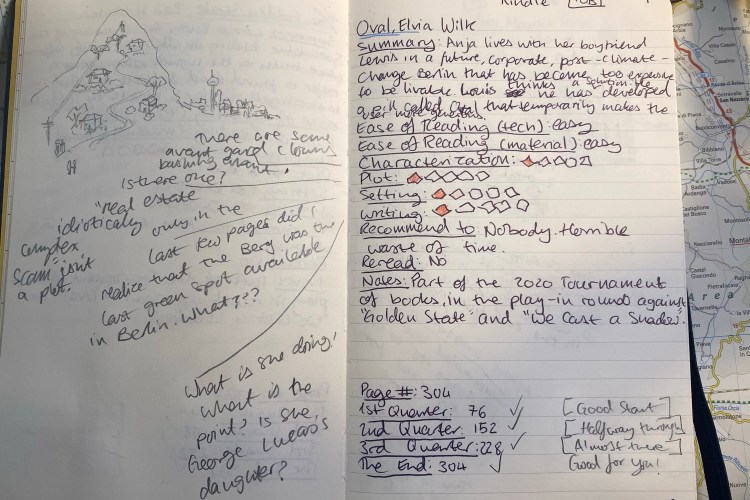 There are some
avant gard clowns
bashing around.
Is there one?
"real estate
idiotically only in the
complex
last few pages did I
scam" isn't
a plot.
realize that the Berg was the
last green spot available
in Berlin. What???
What is she doing!
What is the
point? Is she,
George Lucas's
daughter?
Kindle [TOB]
Oval, Elvia Wilk
Summary: Anja lives with her boyfriend
Lewis in a future, corporate, post-climate-
change Berlin that has become too expensive
to be livable. Louis thinks a solution is the
pill called Oval he has developed that temporarily makes the
user more generous.
Ease of Reading (tech): easy
Ease of Reading (material): easy
Characterization:
Plot:
Setting:
Writing:
Recommend to: Nobody. Horrible
waste of time.
Reread: No
Notes: Part of the 2020 Tournament
of books, in the play-in round against
"Golden State" and "We Cast a Shadow".
Page #: 304
1st Quarter: 76 ✓ [Good Start]
2nd Quarter: 152 ✓ [Halfway through]
3rd Quarter: 228 ✓ [Almost there]
The End: 304 ✓ Good for you!
Area